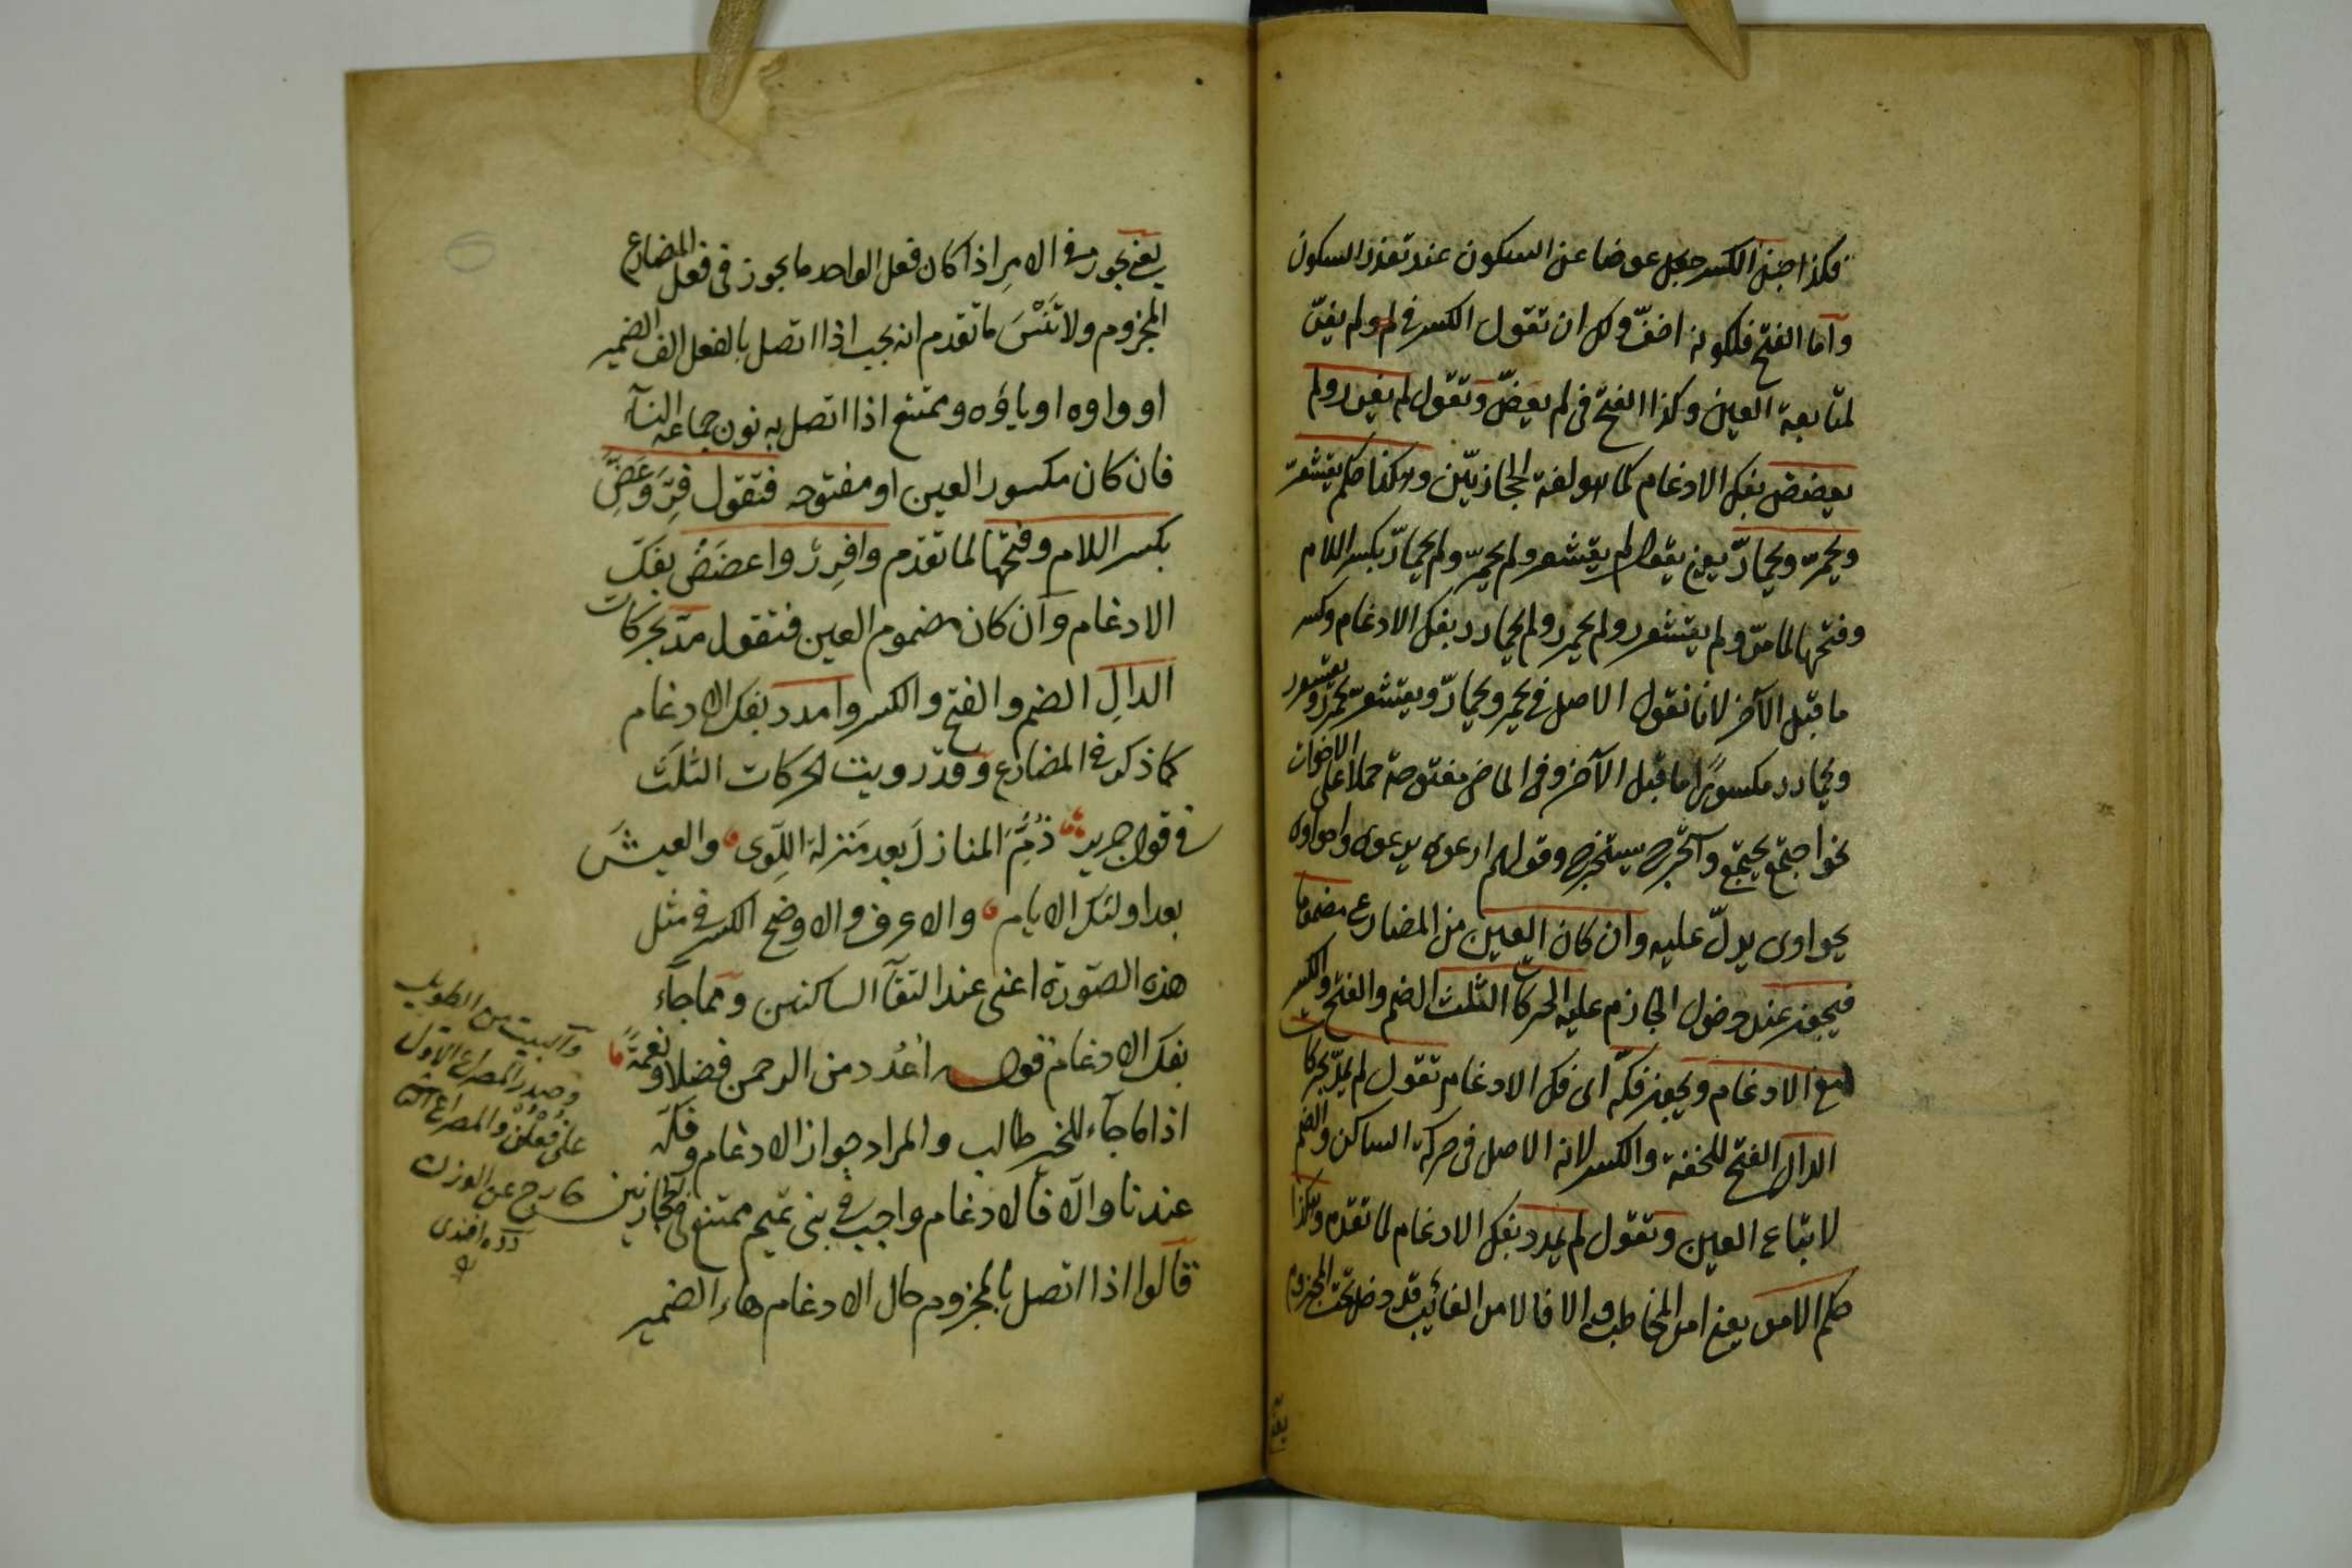 فكذا جنا الكسر جعل عوضا عن السكون عند تعذر السكون
وآما الفتح فلكونه اخفّ ولك ان تقول الكسر فى لم ولم يفرّ
لمتابعة العين وكذا الفتح فى لم يعضّ وتقول لم يفرر ولم
يعضض بفك الادغام كما هو لغة الحجازيّين وهكذا حكم يقشعرّ
ويحمرّ ويحمارّ يعنى يقول لم يقشعر ولم يحمرّ ولم يحمارّ بكسر اللام
وفتحها لما مرّ ولم يقشعرر ولم يحمرر ولم يحمارر بفك الادغام وكسر
ما قبل الآخر لانا نقول الاصل فى يحمر ويحمارّ ويقشعرّ يحمرر ويقشعرر
ويحمارر مكسورًا ما قبل الآخر وفى الماضى مفتوحة حملا على الاخوات
نحو اجتمع يجتمع واستخرج يستخرج وقولهم ارعوى يرعوى واحواوى
يحواوى يدلّ عليه وان كان العين من المضارع مضموما
فيجوز عند دخول الجازم عليه الحركات الثلث الضم والفتح والكسر
مع الادغام ويجوز فكّه اى فك الادغام تقول لم يمدّ بحركات
الدال الفتح للخفة والكسر لانه الاصل فى حركة الساكن والضم
لاتباع العين وتقول لم يمدد بفك الادغام لما تقدم وهكذا
حكم الامر يعنى امر المخاطب والا فالامر الغائب قد دخل تحت المجزوم
يعنى يجوز فى الامر اذا كان فعل الواحد ما يجوز فى فعل المضارع
المجزوم ولا تَنْسَ ما تقدم انه يجب اذا اتصل بالفعل الف الضمير
او واوه او ياؤه ويمتنع اذا اتصل به نون جماعة النسآء
فان كان مكسور العين او مفتوحه فتقول فِرّ وعَضّ
بكسر اللام وفتحها لما تقدم وافرِرْ واعضَضْ بفكّ
الادغام وآن كان مضموم العين فتقول مدّ بحركات
الدالِ الضم والفتح والكسر وامدد بفك الادغام
كما ذكر فى المضارع وقد رويت الحركات الثلث
فى قول جرير ذُمَّ المنازلَ بعد مَنزلة اللِّوى والعيشَ
بعد اولئك الايام والاعرف والاوضح الكسر فى مثل
هذه الصّورة اعنى عند التقآ الساكنين ومما جآء
بفك الادغام قوله اُعْدُد من الرحمن فضلا ونعمةً
اذا ما جآء للخير طالب والمراد جواز الادغام وفكّه
عندنا والّا فالادغام واجب فى بنى تميم ممتنع فى الحجازيّين
قآلوا اذا اتصل بالمجزوم حال الادغام هاء الضمير
وآلبيت من الطويل
وصدر المصراع الاول
على فعلن والمصراع
خارج عن الوزن
دده افندى